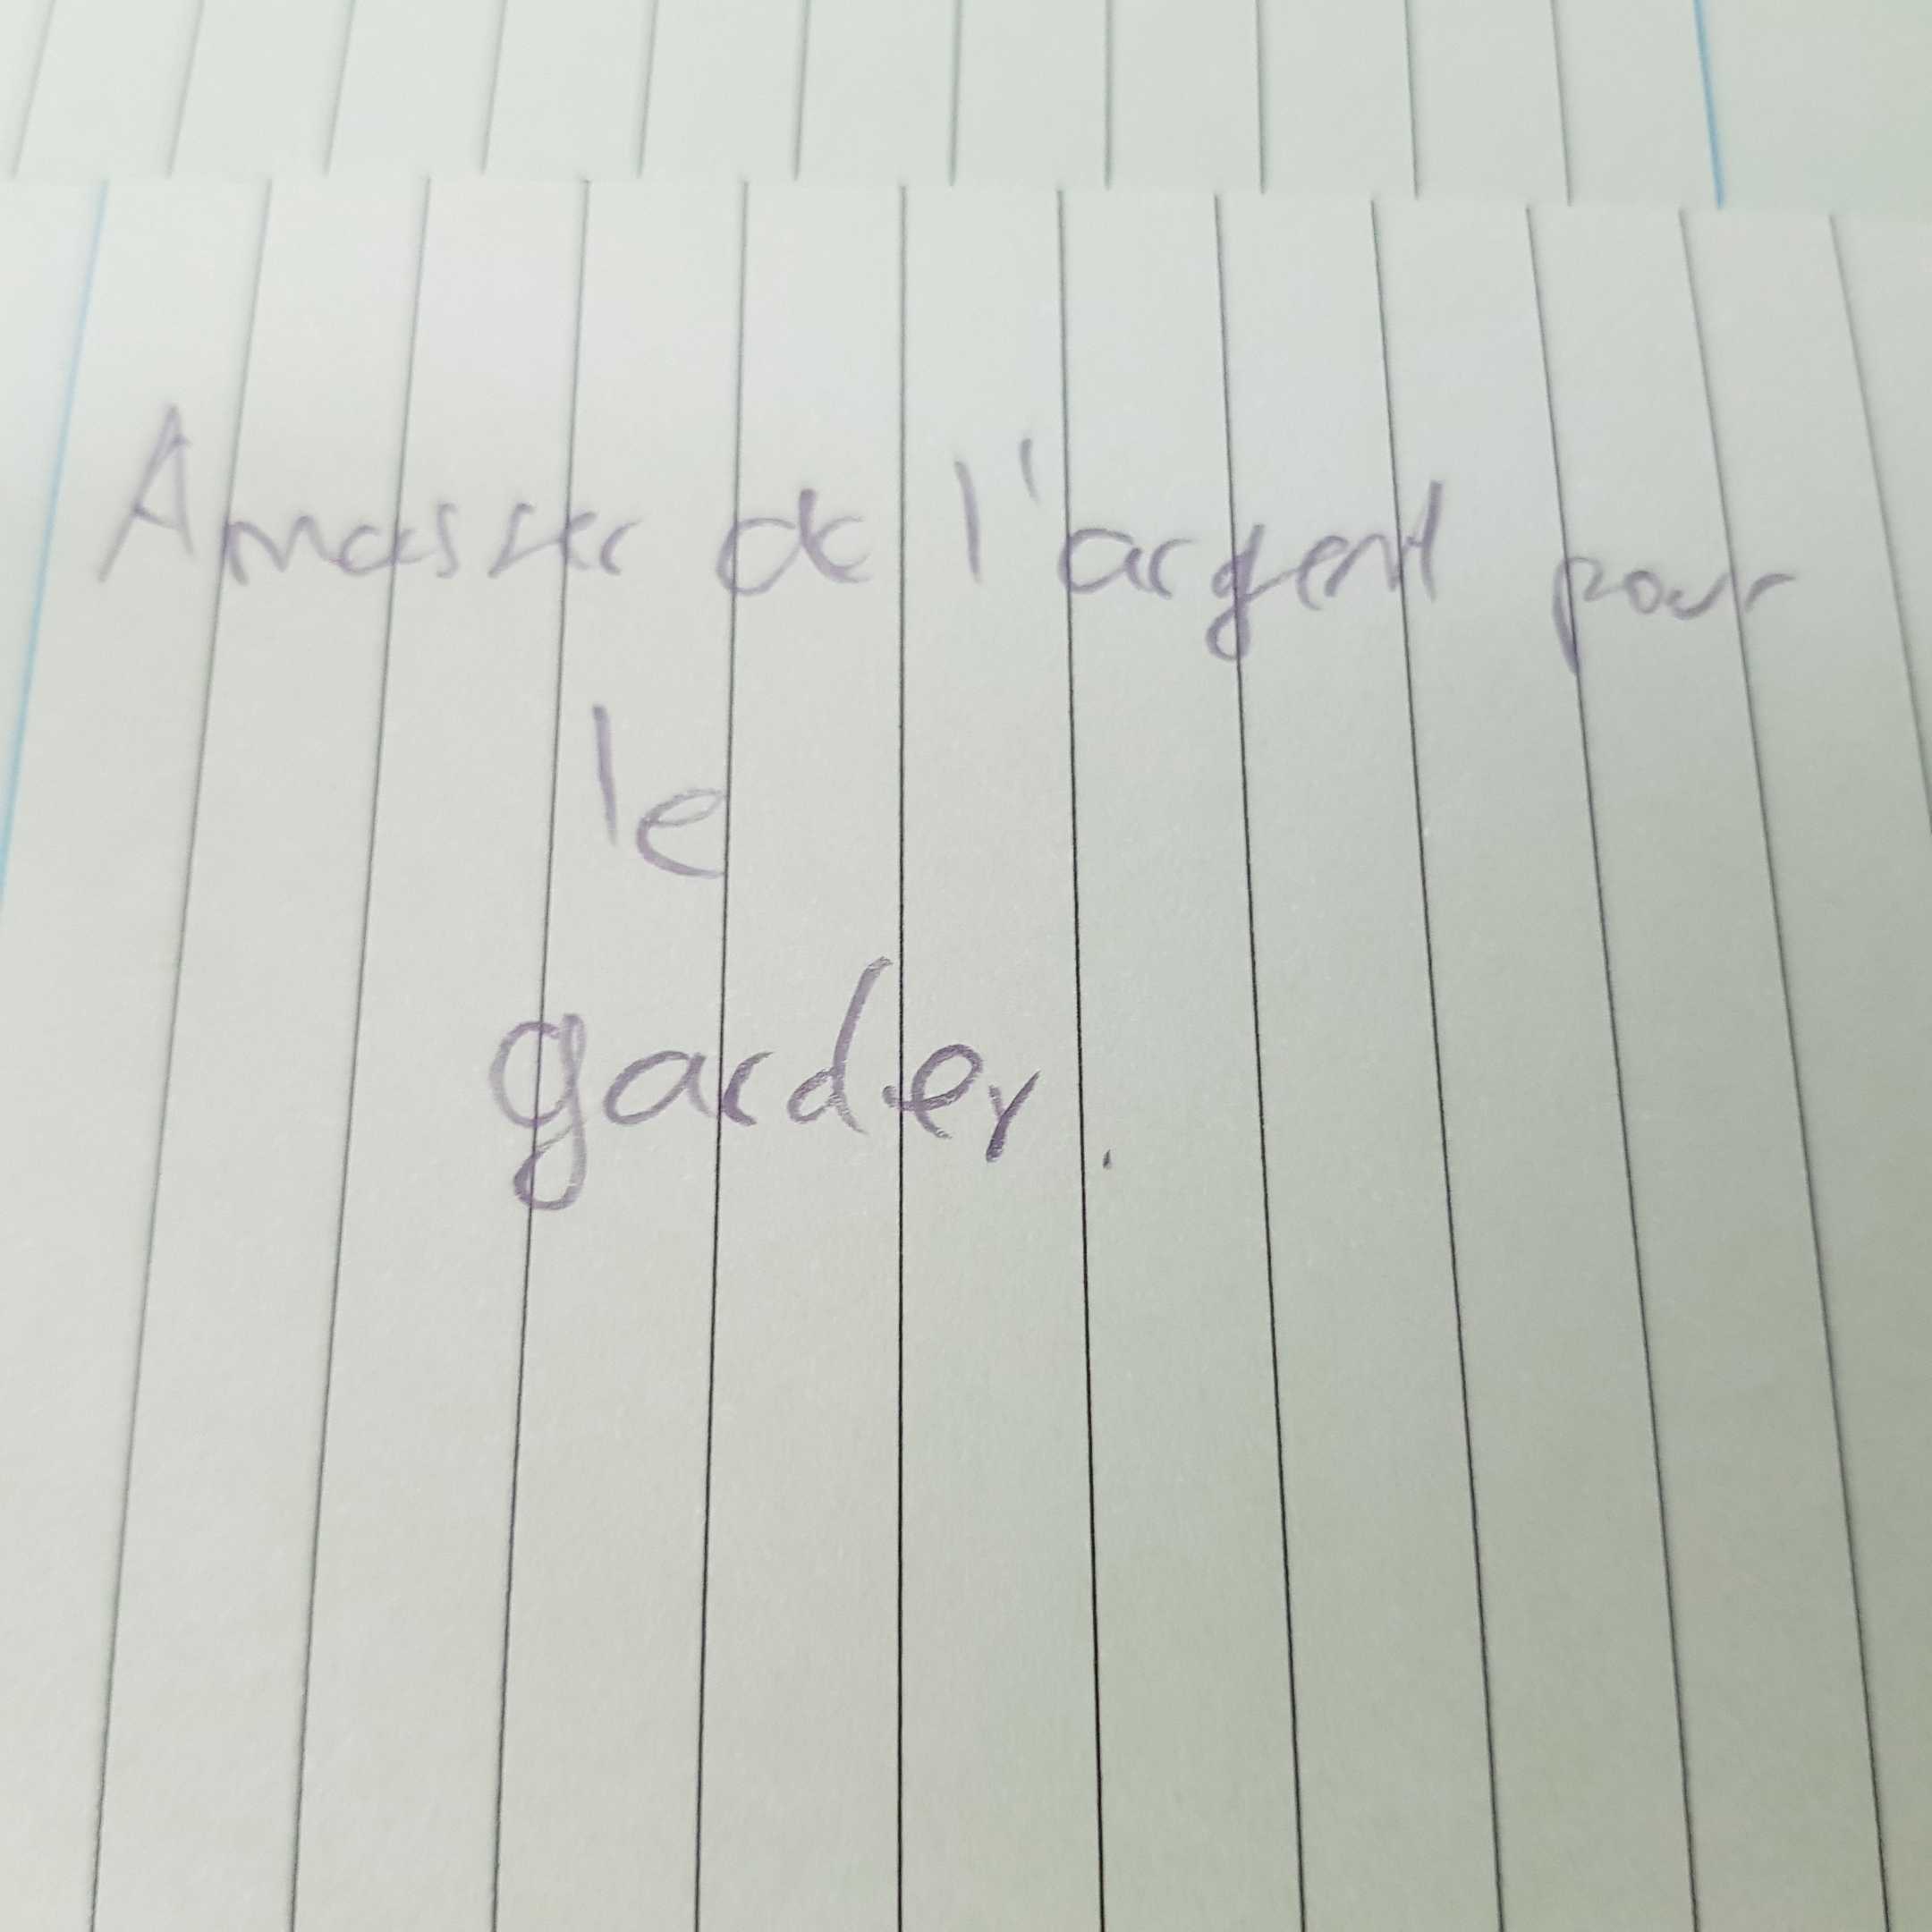 Amasser de l'argent pour
le
garder.